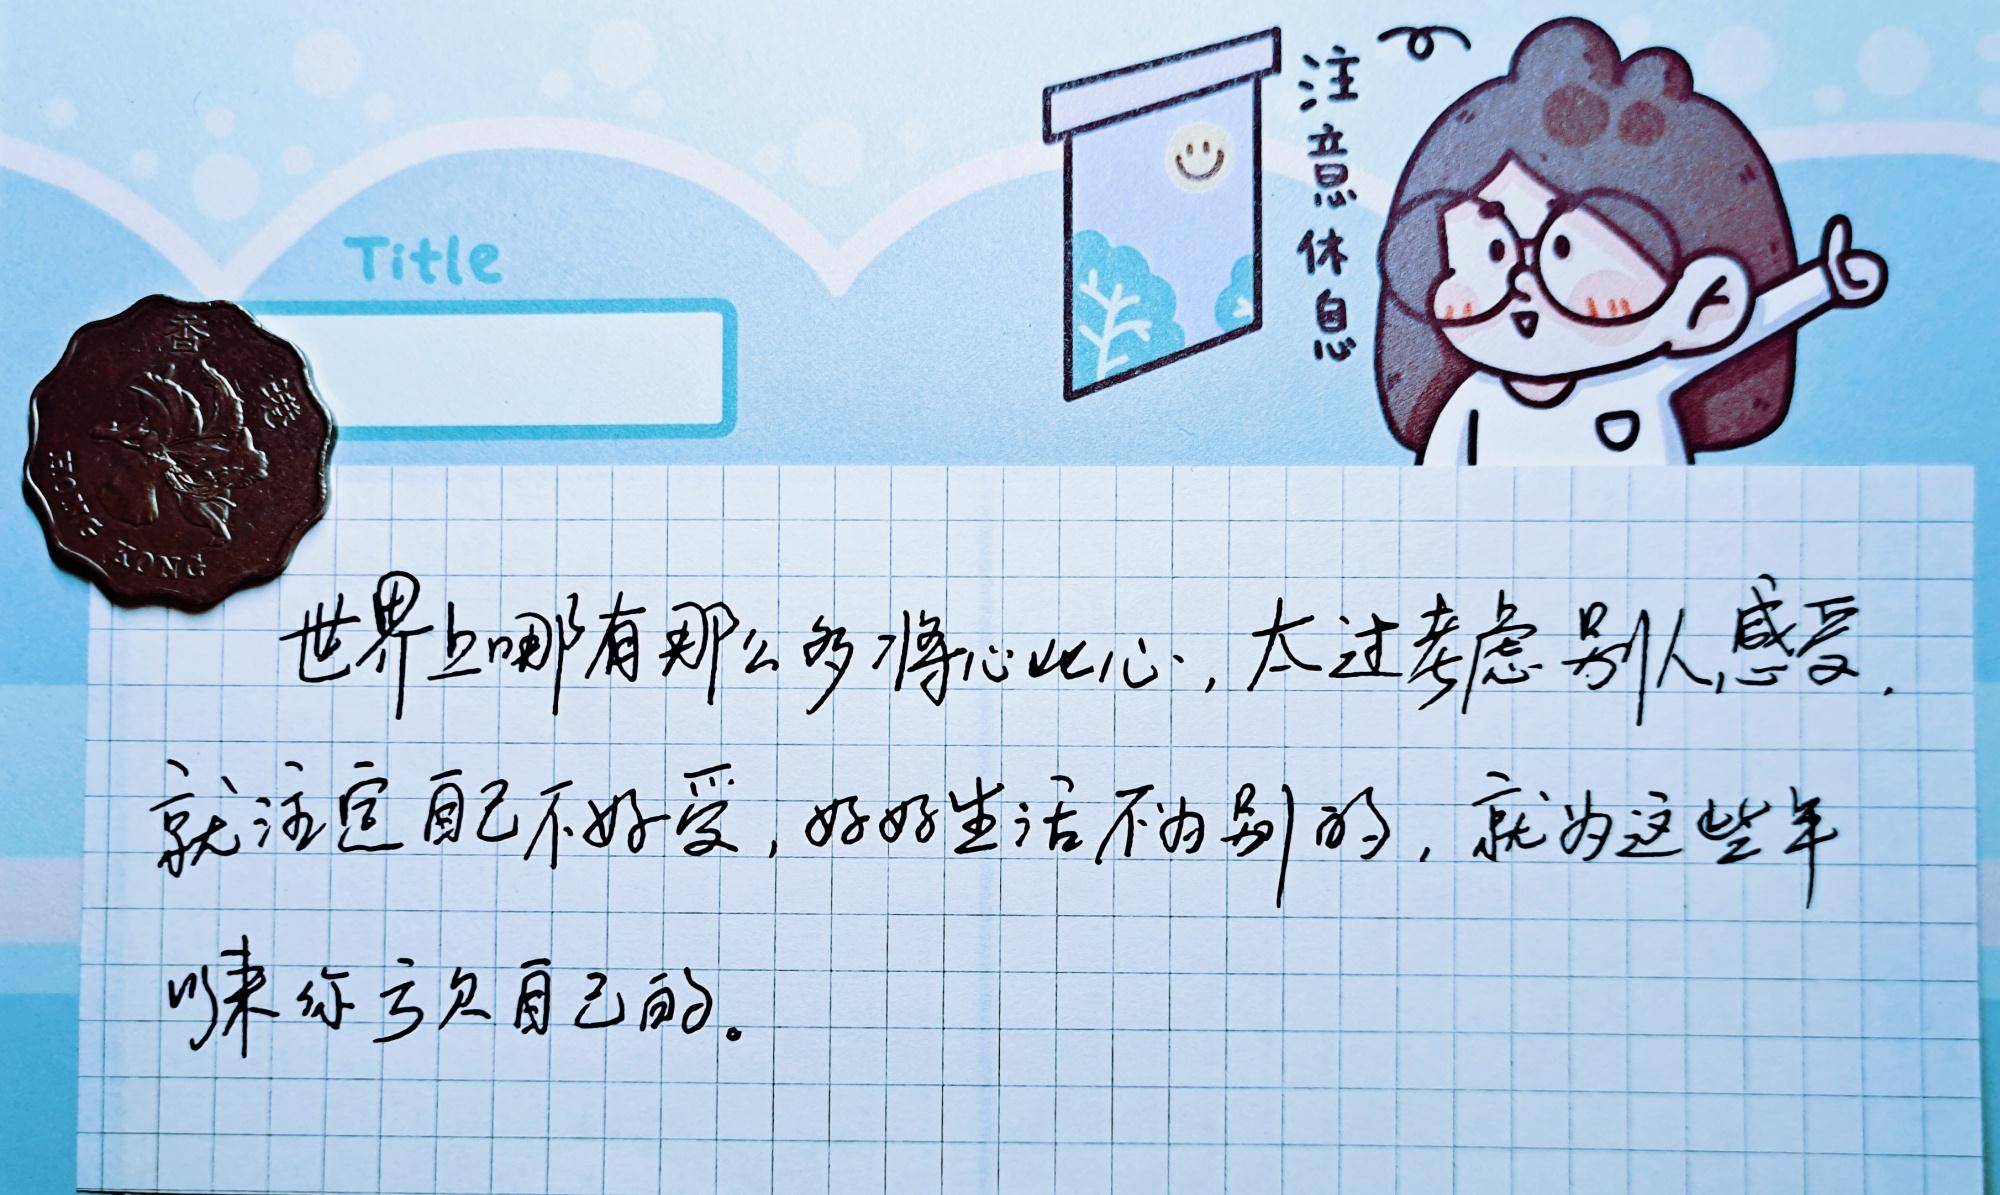 注意休息
Title
香港
HONG KONG
世界上哪有那么多将心比心，太过考虑别人感受，
就注定自己不好受，好好生活不为别的，就为这些年
以来你亏欠自己的。